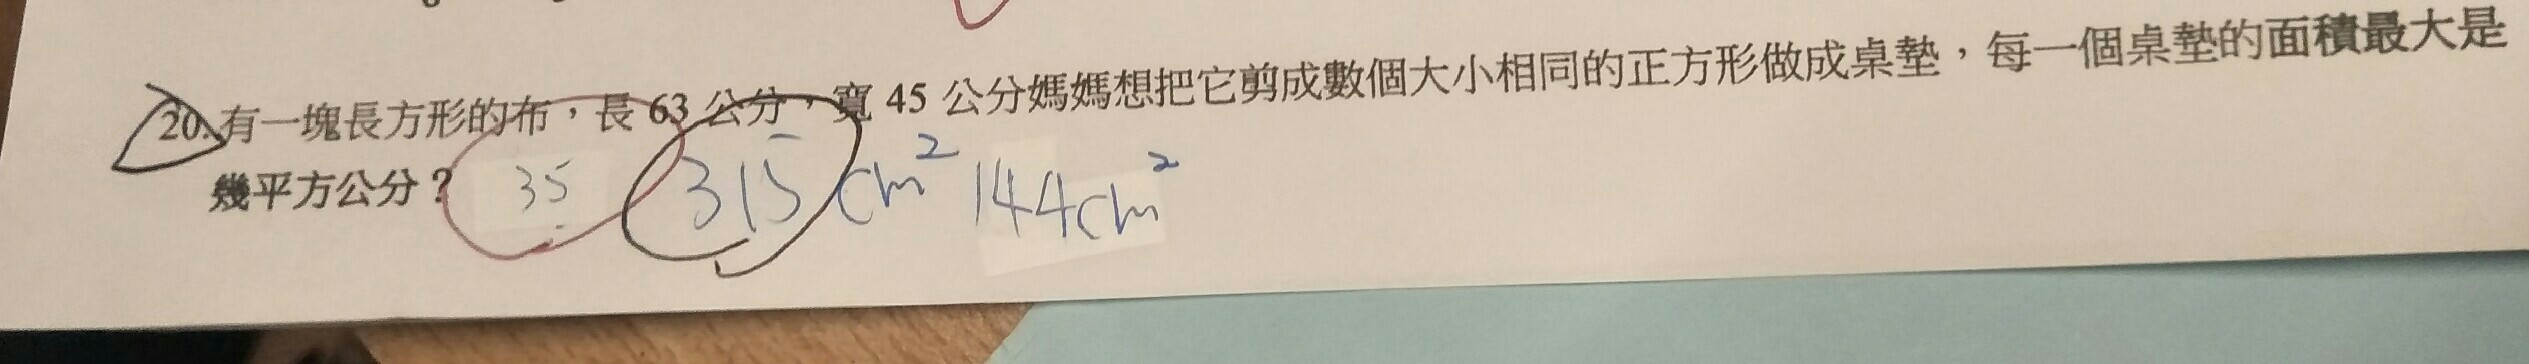 20.有一塊長方形的布，長 63 公分，寬 45 公分媽媽想把它剪成數個大小相同的正方形做成桌墊，每一個桌墊的面積最大是
幾平方公分？ 35 315 cm² 144cm²